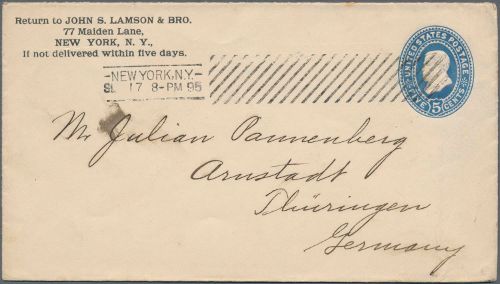 Return to JOHN S. LAMSON & BRO.
77 Maiden Lane,
NEW YORK, N. Y.,
If not delivered within five days.
-NEW YORK, N.Y.-
17 8-PM 95
UNITED STATES POSTAGE
FIVE 5 CENTS
Mr Julian Pannenberg
Arnstadt
Thüringen
Germany